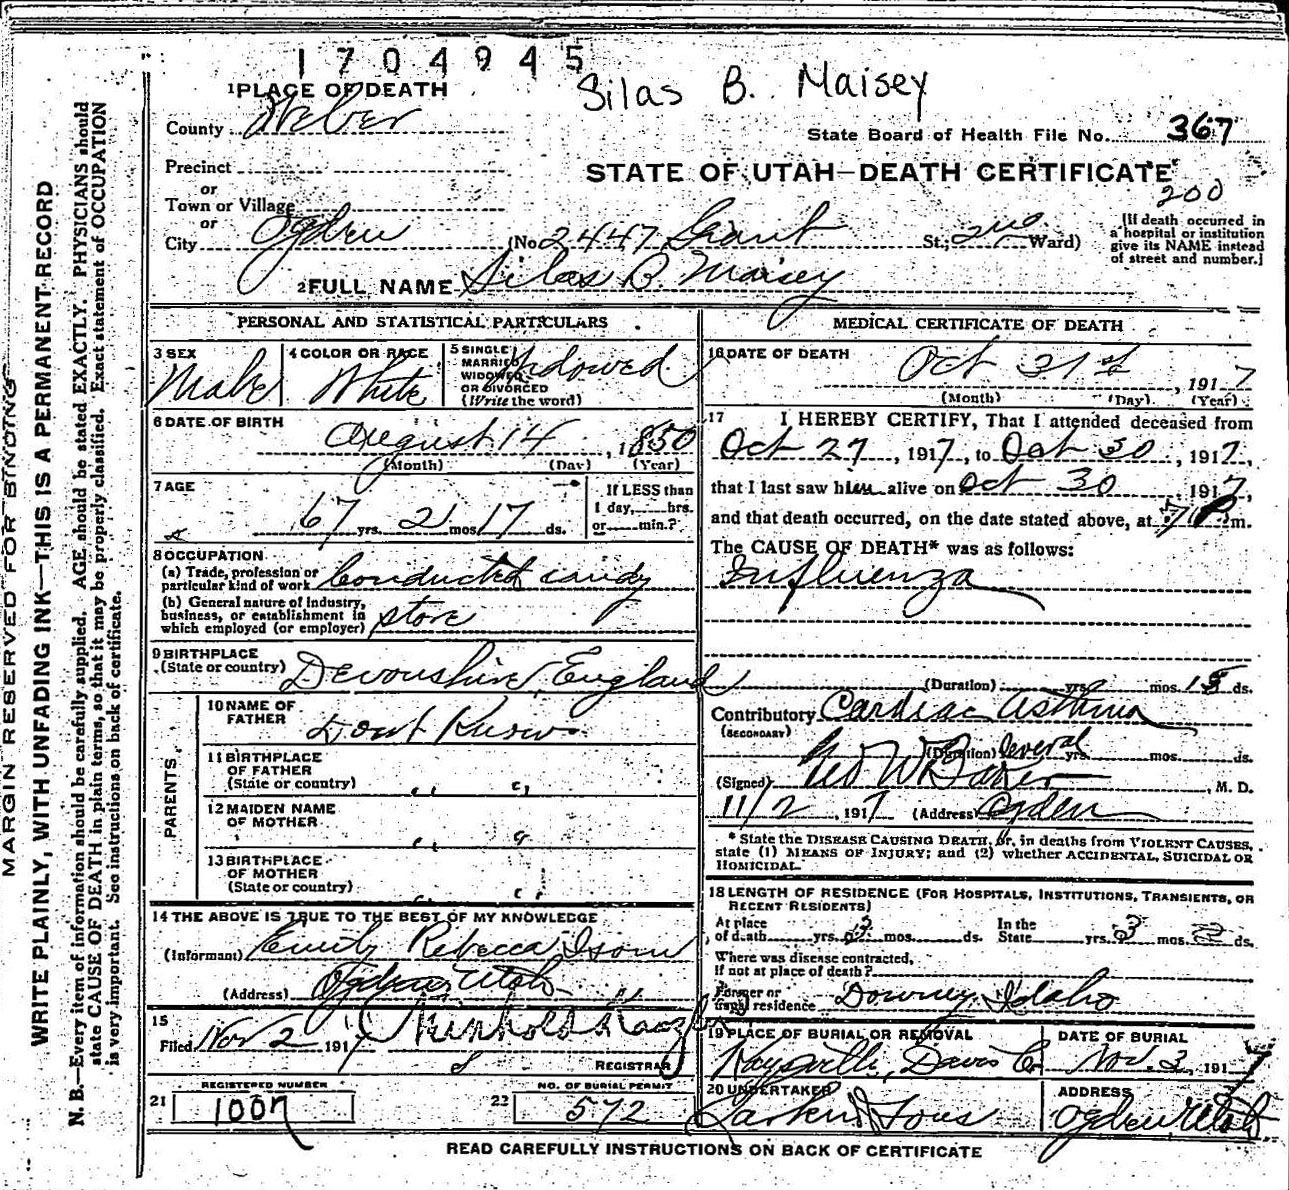 1704945
Silas B. Maisey
1 PLACE OF DEATH
County Weber
State Board of Health File No. 367
Precinct
STATE OF UTAH—DEATH CERTIFICATE
or
200
Town or Village
or
City Ogden (No. 2447 Grant St.; 2nd Ward)
(If death occurred in a hospital or institution give its NAME instead of street and number.)
2 FULL NAME Silas B. Maisey
PERSONAL AND STATISTICAL PARTICULARS
3 SEX Male
4 COLOR OR RACE White
5 SINGLE MARRIED WIDOWED OR DIVORCED (Write the word) Widowed
6 DATE OF BIRTH August 14, 1850
(Month) (Day) (Year)
7 AGE 67 yrs. 2 mos. 17 ds.
If LESS than 1 day, hrs. or min.?
8 OCCUPATION
(a) Trade, profession or particular kind of work Conducted candy
(b) General nature of industry, business, or establishment in which employed (or employer) store
9 BIRTHPLACE (State or country) Devonshire, England
PARENTS
10 NAME OF FATHER Dont Know
11 BIRTHPLACE OF FATHER (State or country) " "
12 MAIDEN NAME OF MOTHER " "
13 BIRTHPLACE OF MOTHER (State or country) " "
14 THE ABOVE IS TRUE TO THE BEST OF MY KNOWLEDGE
(Informant) Emily Rebecca Isom
(Address) Ogden Utah
15
Filed Nov 2 1917
REGISTRAR
REGISTERED NUMBER
21 1007
NO. OF BURIAL PERMIT
22 572
MEDICAL CERTIFICATE OF DEATH
16 DATE OF DEATH Oct 31st, 1917
(Month) (Day) (Year)
17 I HEREBY CERTIFY, That I attended deceased from
Oct 27, 1917, to Oct 30, 1917,
that I last saw him alive on Oct 30 1917,
and that death occurred, on the date stated above, at 7 P m.
The CAUSE OF DEATH* was as follows:
Influenza
(Duration) yrs. mos. ds.
Contributory Cardiac Asthma
(SECONDARY)
(Duration) Several yrs. mos. ds.
(Signed) Geo W Baker, M. D.
11/2, 1917 (Address) Ogden
* State the DISEASE CAUSING DEATH, or, in deaths from VIOLENT CAUSES,
state (1) MEANS OF INJURY; and (2) whether ACCIDENTAL, SUICIDAL OR
HOMICIDAL.
18 LENGTH OF RESIDENCE (FOR HOSPITALS, INSTITUTIONS, TRANSIENTS, OR
RECENT RESIDENTS)
At place of death yrs. mos. ds. In the State yrs. 3 mos. ds.
Where was disease contracted,
if not at place of death?
Former or usual residence Downey, Idaho
19 PLACE OF BURIAL OR REMOVAL
Kaysville, Davis Co
DATE OF BURIAL
Nov. 3, 1917
20 UNDERTAKER
Larkin & Sons
ADDRESS
Ogden Utah
READ CAREFULLY INSTRUCTIONS ON BACK OF CERTIFICATE
MARGIN RESERVED FOR BINDING
WRITE PLAINLY, WITH UNFADING INK—THIS IS A PERMANENT RECORD
N. B.—Every item of information should be carefully supplied. AGE should be stated EXACTLY. PHYSICIANS should
state CAUSE OF DEATH in plain terms, so that it may be properly classified. Exact statement of OCCUPATION
is very important. See instructions on back of certificate.